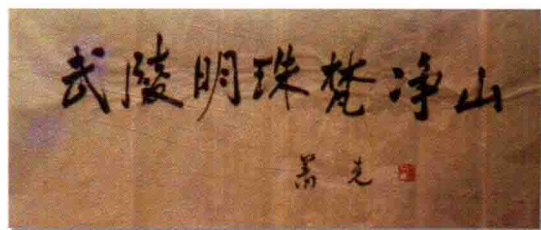 武陵明珠梵净山
萧克